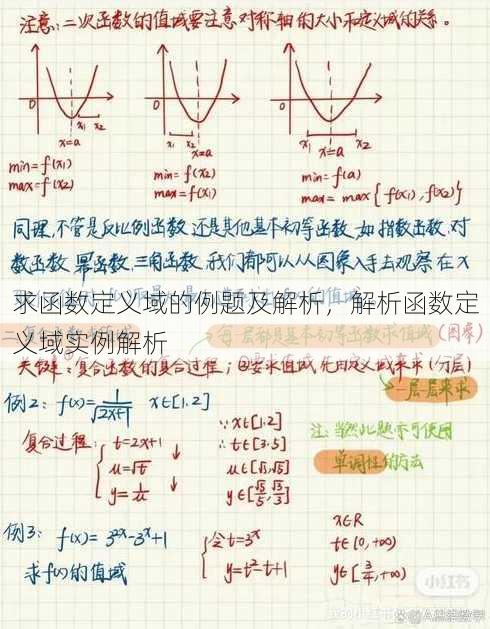 注意:二次函数的值域要注意对称轴的大小和定义域的关系。
0 x₁ x₂ x=a
0 x₁ x₂ x=a
0 x₁ x=a x₂
min=f(x₁)
max=f(x₂)
min=f(x₂)
max=f(x₁)
min=f(a)
max=max{f(x₁),f(x₂)}
同理,不管是反比例函数还是其他基本初等函数,如指数函数,对
数函数,幂函数,三角函数,我们都可以从图象入手去观察在x
求函数定义域的例题及解析，解析函数定
义域实例解析
每一层都是基本初等函数求值域(图象)
关键是:复合函数的复合过程;②要求值域,先由定义域来求(分层)
一层层来求
例2: f(x)=1/√(2x+1) x∈[1,2]
复合过程: { t=2x+1 ↓
u=√t ↓
y=1/u
∵x∈[1,2]
∴t∈[3,5]
u∈[√3,√5]
y∈[√5/5,√3/3]
注:当然此题亦可使用
单调性的方法
例3: f(x)=3²ˣ-3ˣ+1
求f(x)的值域
{ 令t=3ˣ
y=t²-t+1
x∈R
t∈(0,+∞)
y∈[3/4,+∞)
小红书